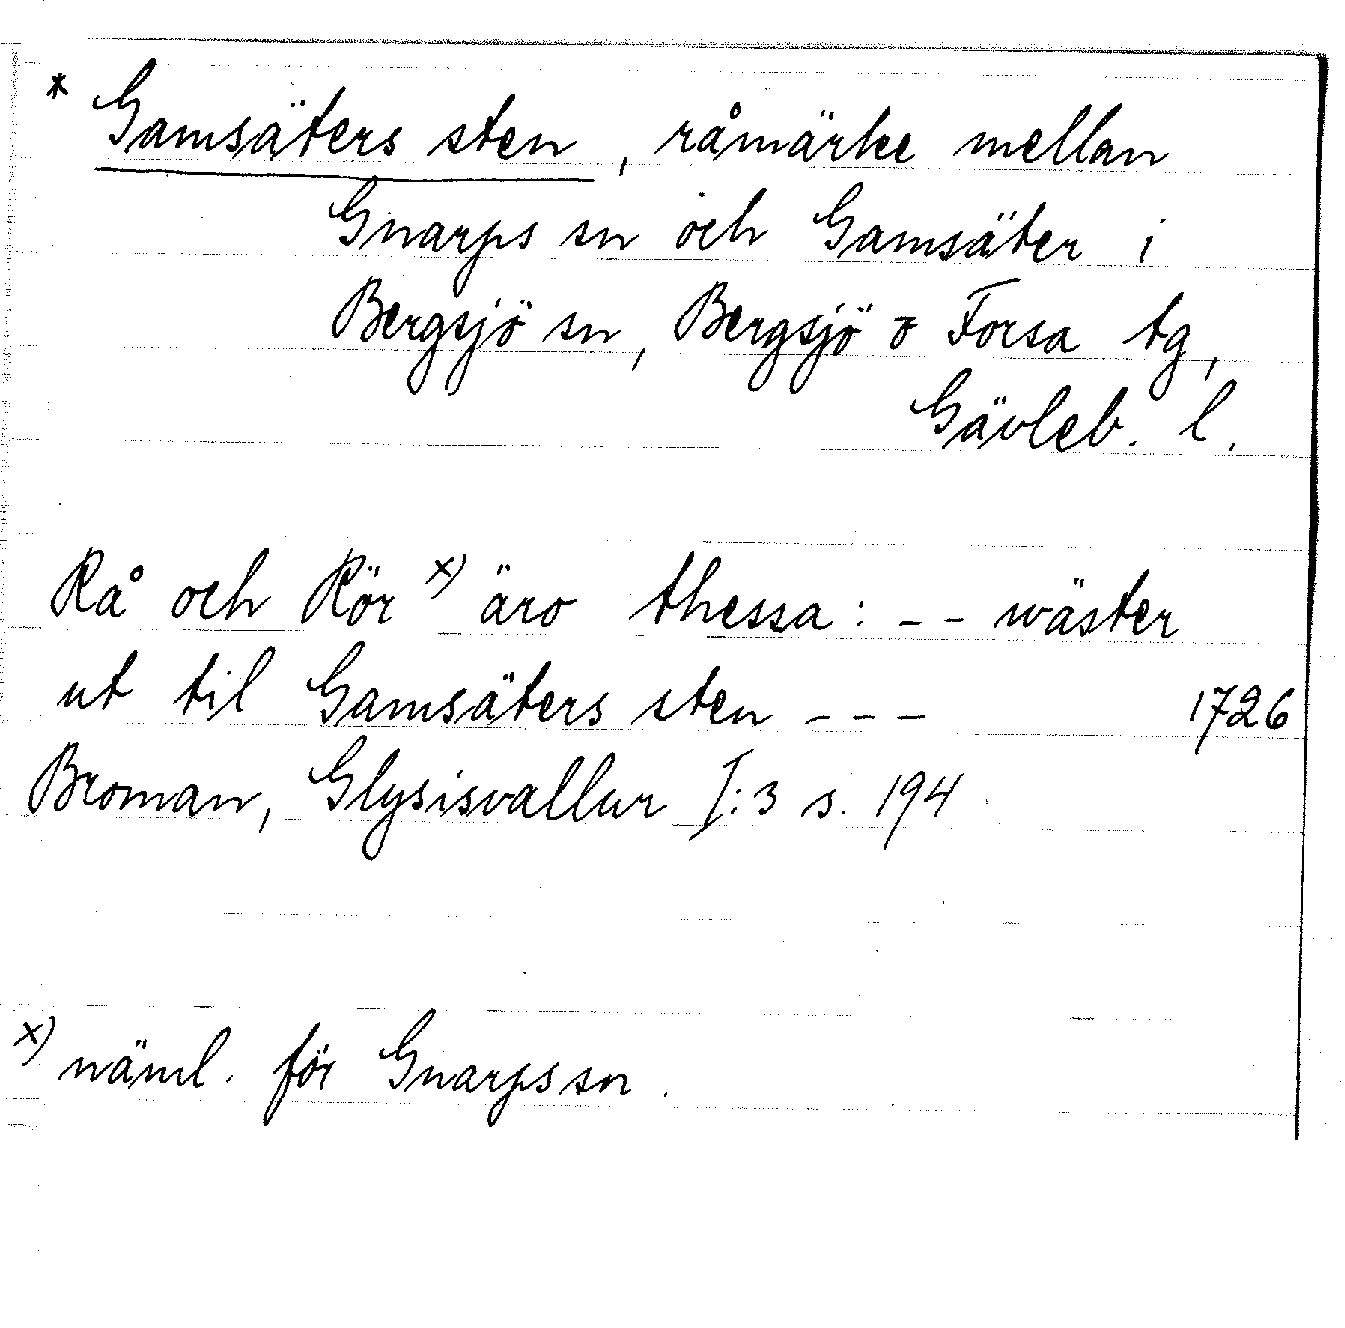 * Gamsäters sten, råmärke mellan
Gnarps sn och Gamsäter i
Bergsjö sn, Bergsjö o Forsa tg,
Gävleb. l.
Rå och Rör x) äro thessa: - - wäster
ut til Gamsäters sten - - - 1726
Broman, Glysisvallur I:3 s. 194
x) näml. för Gnarps sn.